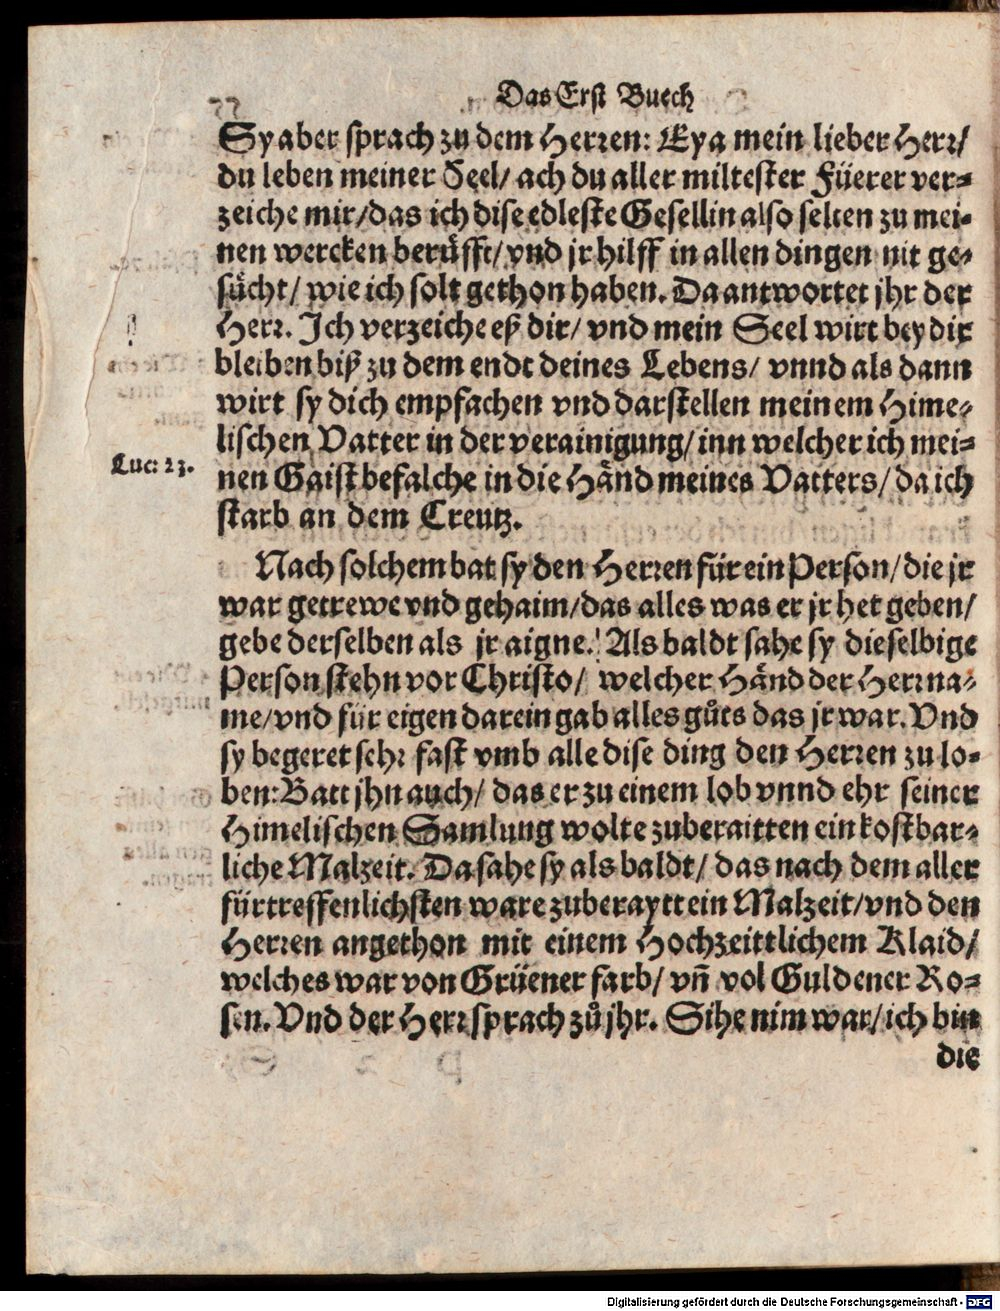 Das Erst Buech
Sy aber sprach zu dem Herꝛen: Eya mein lieber Herꝛ/
du leben meiner Seel/ ach du aller miltester Füerer ver⸗
zeiche mir/das ich dise edleste Gesellin also selten zu mei⸗
nen wercken berüfft/ vnd jr hilff in allen dingen nit ge⸗
sücht/ wie ich solt gethon haben. Da antwortet jhr der
Herꝛ. Ich verzeiche eß dir/ vnd mein Seel wirt bey dir
bleiben biß zu dem endt deines Lebens/ vnnd als dann
wirt sy dich empfachen vnd darstellen meinem Hime⸗
lischen Vatter in der verainigung/ inn welcher ich mei⸗
Luc: 23.
nen Gaist befalche in die Hånd meines Vatters/ da ich
starb an dem Creutz.
Nach solchem bat sy den Herꝛen für ein Person/ die jr
war getrewe vnd gehaim/das alles was er jr het geben/
gebe derselben als jr aigne. Als baldt sahe sy dieselbige
Person stehn vor Christo/ welcher Hånd der Herꝛ na⸗
me/vnd für eigen darein gab alles gůts das jr war. Vnd
sy begeret sehꝛ fast vmb alle dise ding den Herꝛen zu lo⸗
ben: Batt jhn auch/ das er zu einem lob vnnd ehr seiner
Himelischen Samlung wolte zuberaitten ein kostbar⸗
liche Malzeit. Da sahe sy als baldt/ das nach dem aller
fürtreffenlichsten ware zuberaytt ein Malzeit/vnd den
Herꝛen angethon mit einem Hochzeittlichem Klaid/
welches war von Grüener farb/ vñ vol Guldener Ro⸗
sen. Vnd der Herꝛ sprach zů jhr. Sihe nim war/ ich bin
die
Digitalisierung gefördert durch die Deutsche Forschungsgemeinschaft - DFG